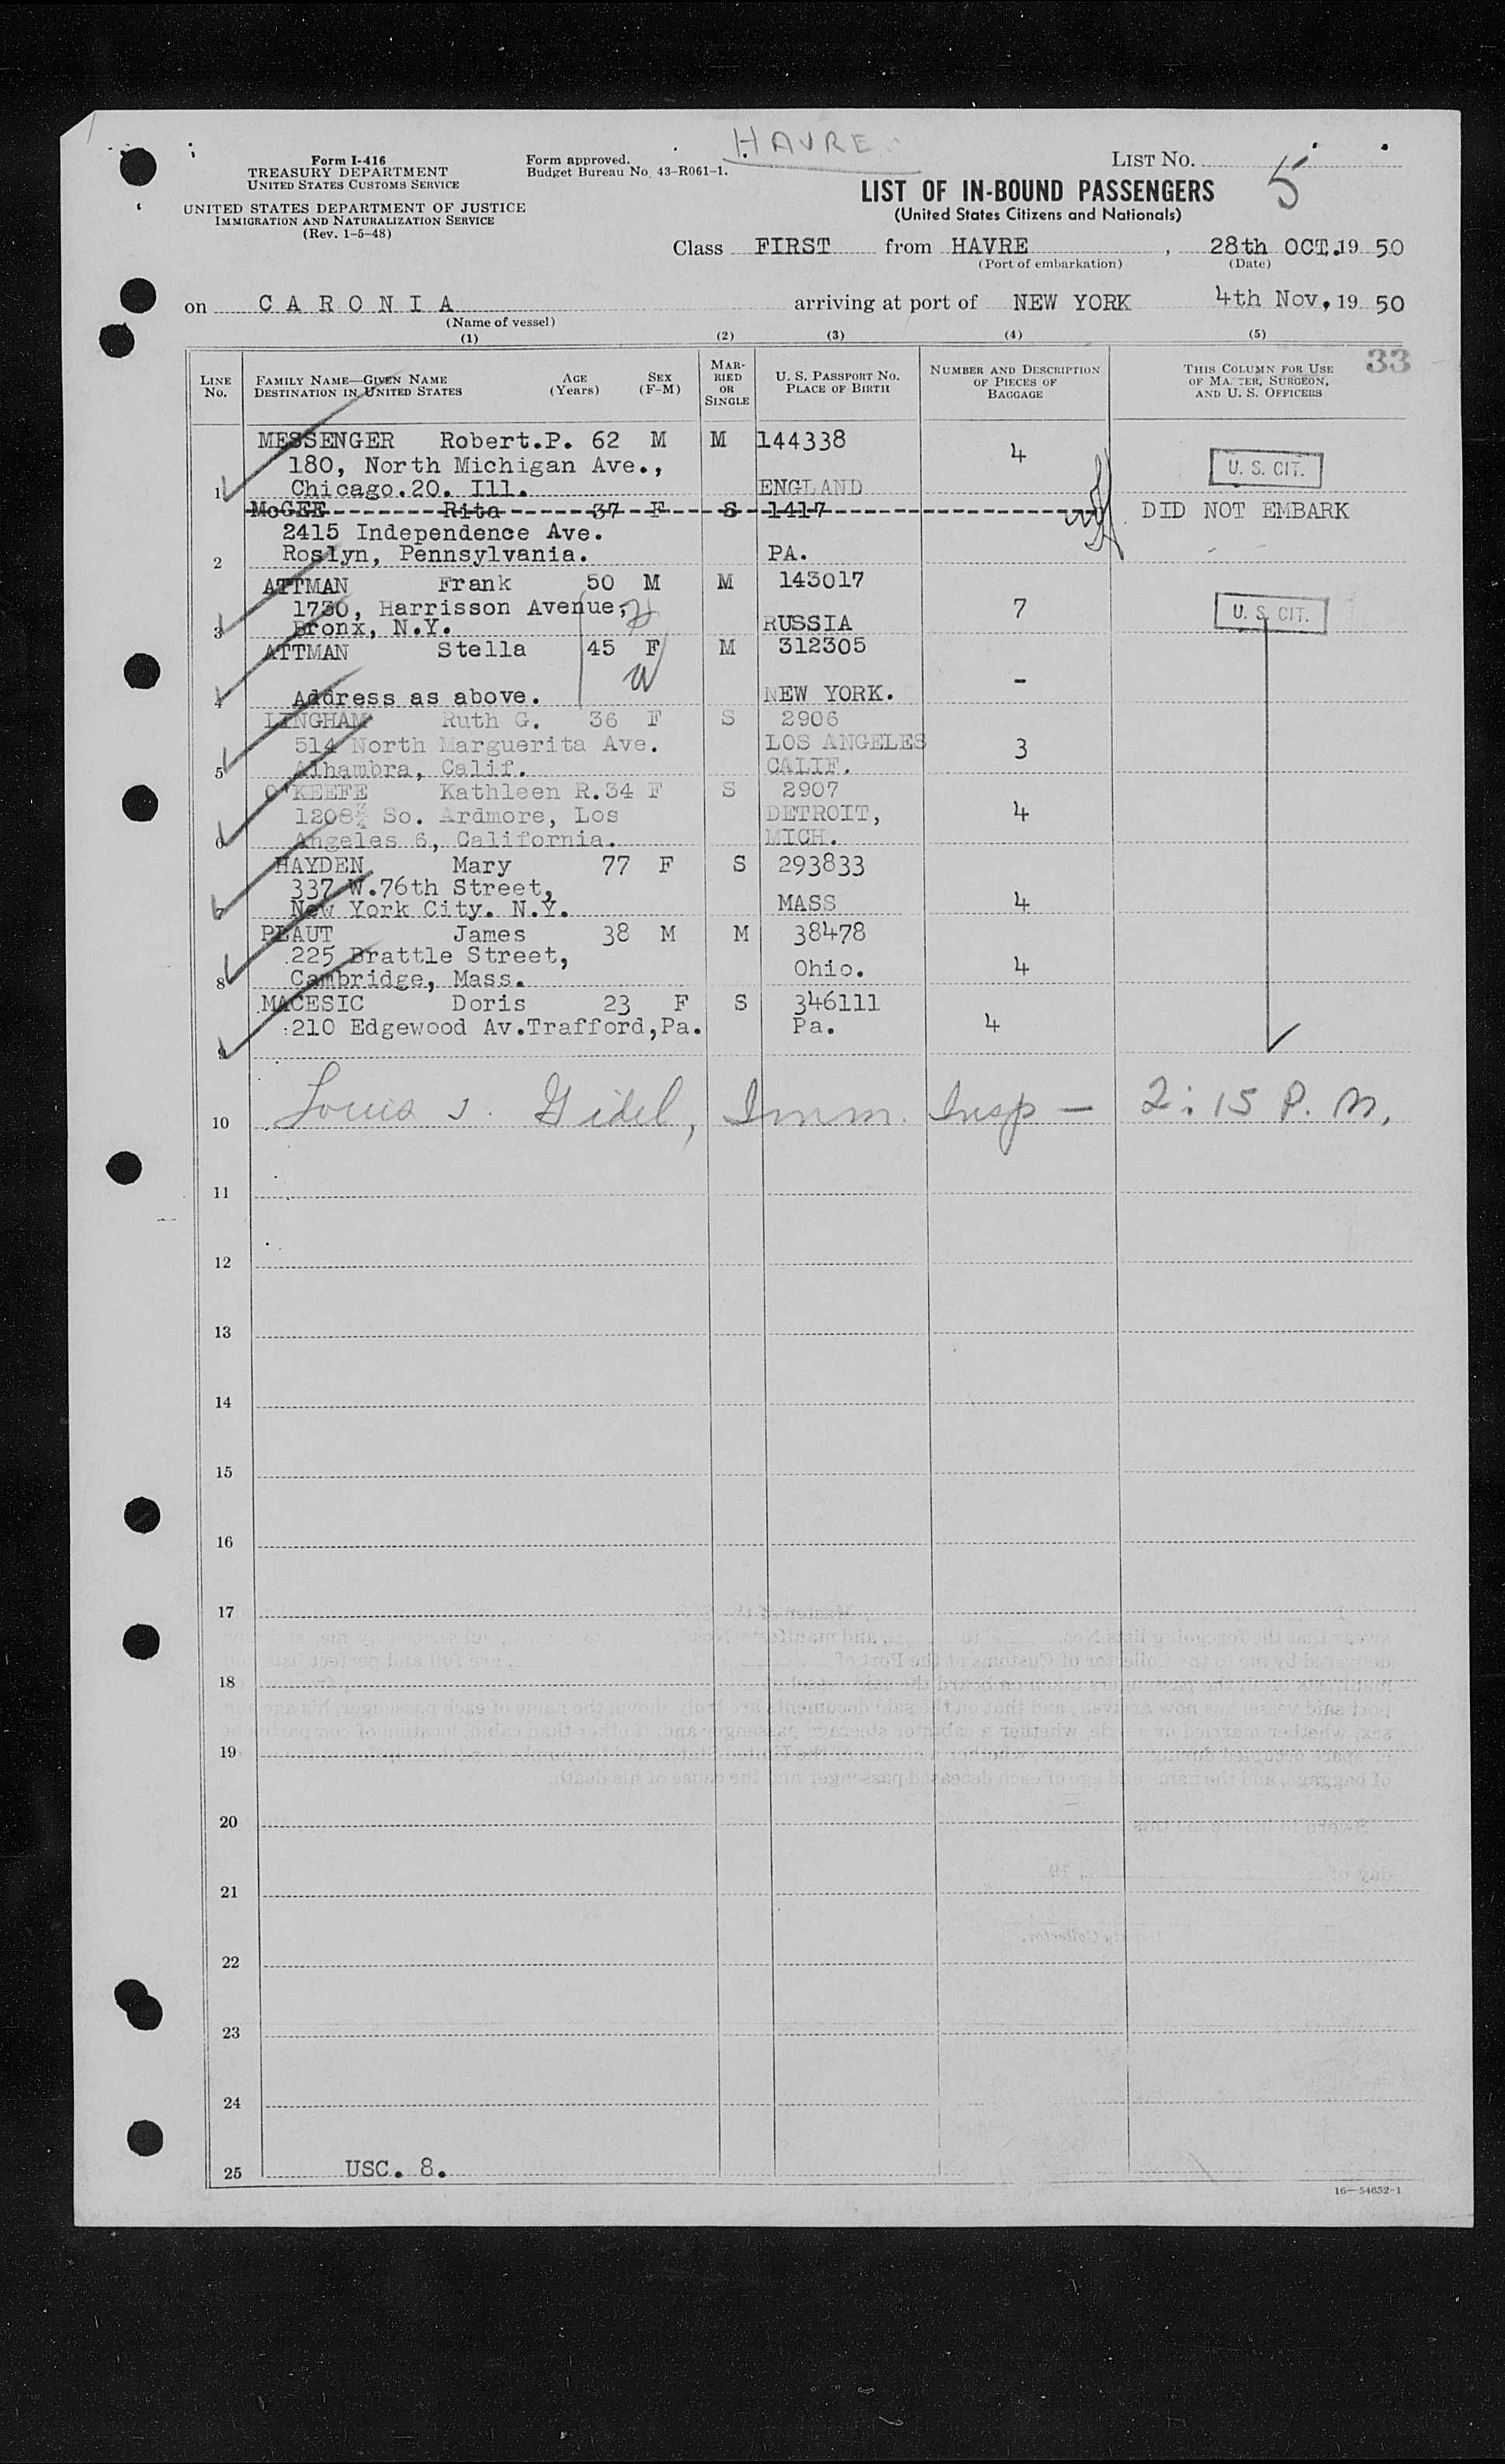 HAVRE
Form I-416
TREASURY DEPARTMENT
UNITED STATES CUSTOMS SERVICE
Form approved.
Budget Bureau No. 43-R061-1.
LIST NO. 5
UNITED STATES DEPARTMENT OF JUSTICE
IMMIGRATION AND NATURALIZATION SERVICE
(Rev. 1-5-48)
LIST OF IN-BOUND PASSENGERS
(United States Citizens and Nationals)
Class FIRST from HAVRE, 28th OCT. 19 50
(Port of embarkation) (Date)
on CARONIA arriving at port of NEW YORK 4th Nov, 19 50
(Name of vessel)
(1) (2) (3) (4) (5)
33
LINE No. FAMILY NAME—GIVEN NAME DESTINATION IN UNITED STATES AGE (Years) SEX (F-M) MARRIED OR SINGLE U. S. PASSPORT NO. PLACE OF BIRTH NUMBER AND DESCRIPTION OF PIECES OF BAGGAGE THIS COLUMN FOR USE OF MASTER, SURGEON, AND U. S. OFFICERS
MESSENGER Robert.P. 62 M M 144338 4
180, North Michigan Ave., U. S. CIT.
1 Chicago.20. Ill. ENGLAND
McGEE Rita 37 F S 1417 DID NOT EMBARK
2415 Independence Ave.
2 Roslyn, Pennsylvania. PA.
ATTMAN Frank 50 M M 143017
1730, Harrisson Avenue, 7 U. S. CIT.
3 Bronx, N.Y. RUSSIA
ATTMAN Stella 45 F M 312305
4 Address as above. NEW YORK. -
LINGHAM Ruth G. 36 F S 2906
514 North Marguerita Ave. LOS ANGELES 3
5 Alhambra, Calif. CALIF.
O'KEEFE Kathleen R. 34 F S 2907
1208¾ So. Ardmore, Los DETROIT, 4
6 Angeles 6, California. MICH.
HAYDEN Mary 77 F S 293833
337 W.76th Street,
7 New York City. N.Y. MASS 4
PLAUT James 38 M M 38478
225 Brattle Street,
8 Cambridge, Mass. Ohio. 4
MACESIC Doris 23 F S 346111
210 Edgewood Av.Trafford,Pa. Pa. 4
9
10 Louis J. Gidel, Imm. Insp — 2:15 P.M.
11
12
13
14
15
16
17
18
19
20
21
22
23
24
25 USC. 8.
16—54652-1